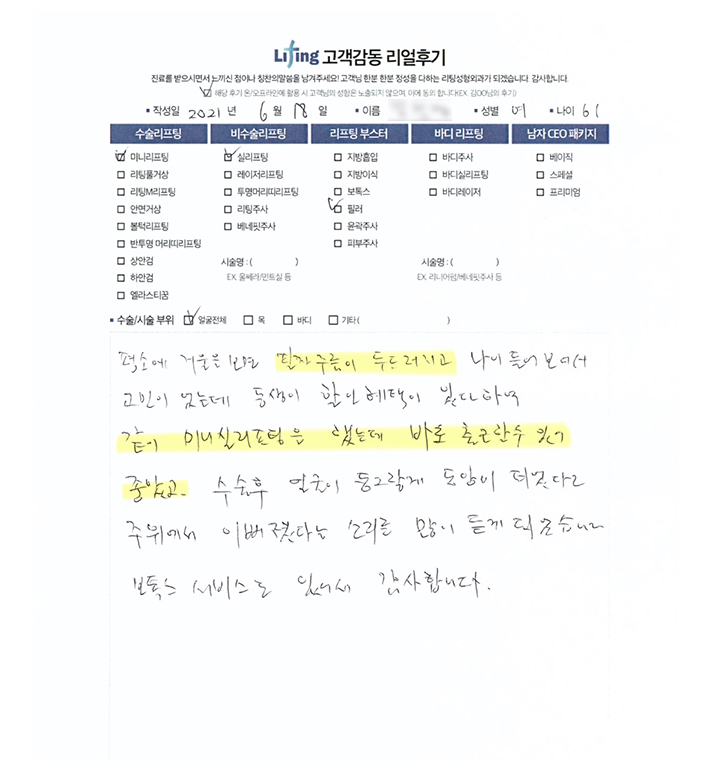 Lifting 고객감동 리얼후기
진료를 받으시면서 느끼신 점이나 칭찬의말씀을 남겨주세요! 고객님 한분 한분 정성을 다하는 리팅성형외과가 되겠습니다. 감사합니다.
해당 후기 온/오프라인에 활용 시 고객님의 성함은 노출되지 않으며, 이에 동의 합니다.(EX. 김OO님의 후기)
작성일 2021년 6월 18일 이름 성별 여 나이 61
수술리프팅 비수술리프팅 리프트 부스터 바디 리프팅 남자 CEO 패키지
미니리프팅 실리프팅 지방흡입 바디주사 베이직
리팅풀거상 레이저리프팅 지방이식 바디실리프팅 스페셜
리팅M리프팅 투명머리띠리프팅 보톡스 바디레이저 프리미엄
안면거상 리팅주사 필러
볼턱리프팅 베네핏주사 윤곽주사
반투명 머리띠리프팅 피부주사
상안검 시술명 : ( ) 시술명 : ( )
하안검 EX. 울쎄라/민트실 등 EX. 리니어펌/베네핏주사 등
엘라스티꿈
수술/시술 부위 얼굴전체 목 바디 기타 ( )
평소에 거울을 보면 팔자주름이 두드러지고 나이 들어 보여서
고민이 었는데 동생이 할인 혜택이 있다 하여
같이 미니실리프팅을 했는데 바로 출근할수 있어
좋았고. 수술후 얼굴이 동그랗게 모양이 되었다고
주위에서 이뻐졌다는 소리를 많이 듣게 되었습니다
보톡스 서비스도 있어서 감사합니다.